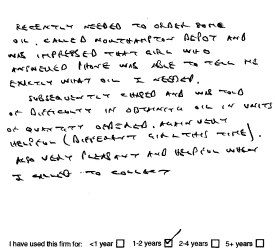 RECENTLY NEEDED TO ORDER SOME
OIL. CALLED NORTHAMPTON DEPOT AND
WAS IMPRESSED THAT GIRL WHO
ANSWERED PHONE WAS ABLE TO TELL ME
EXACTLY WHAT OIL I NEEDED.
SUBSEQUENTLY CHASED AND WAS TOLD
OF DIFFICULTY IN OBTAINING OIL IN UNITS
OF QUANTITY ORDERED. AGAIN VERY
HELPFUL (DIFFERENT GIRL THIS TIME).
ALSO VERY PLEASANT AND HELPFUL WHEN
I CALLED TO COLLECT
I have used this firm for: <1 year 1-2 years 2-4 years 5+ years